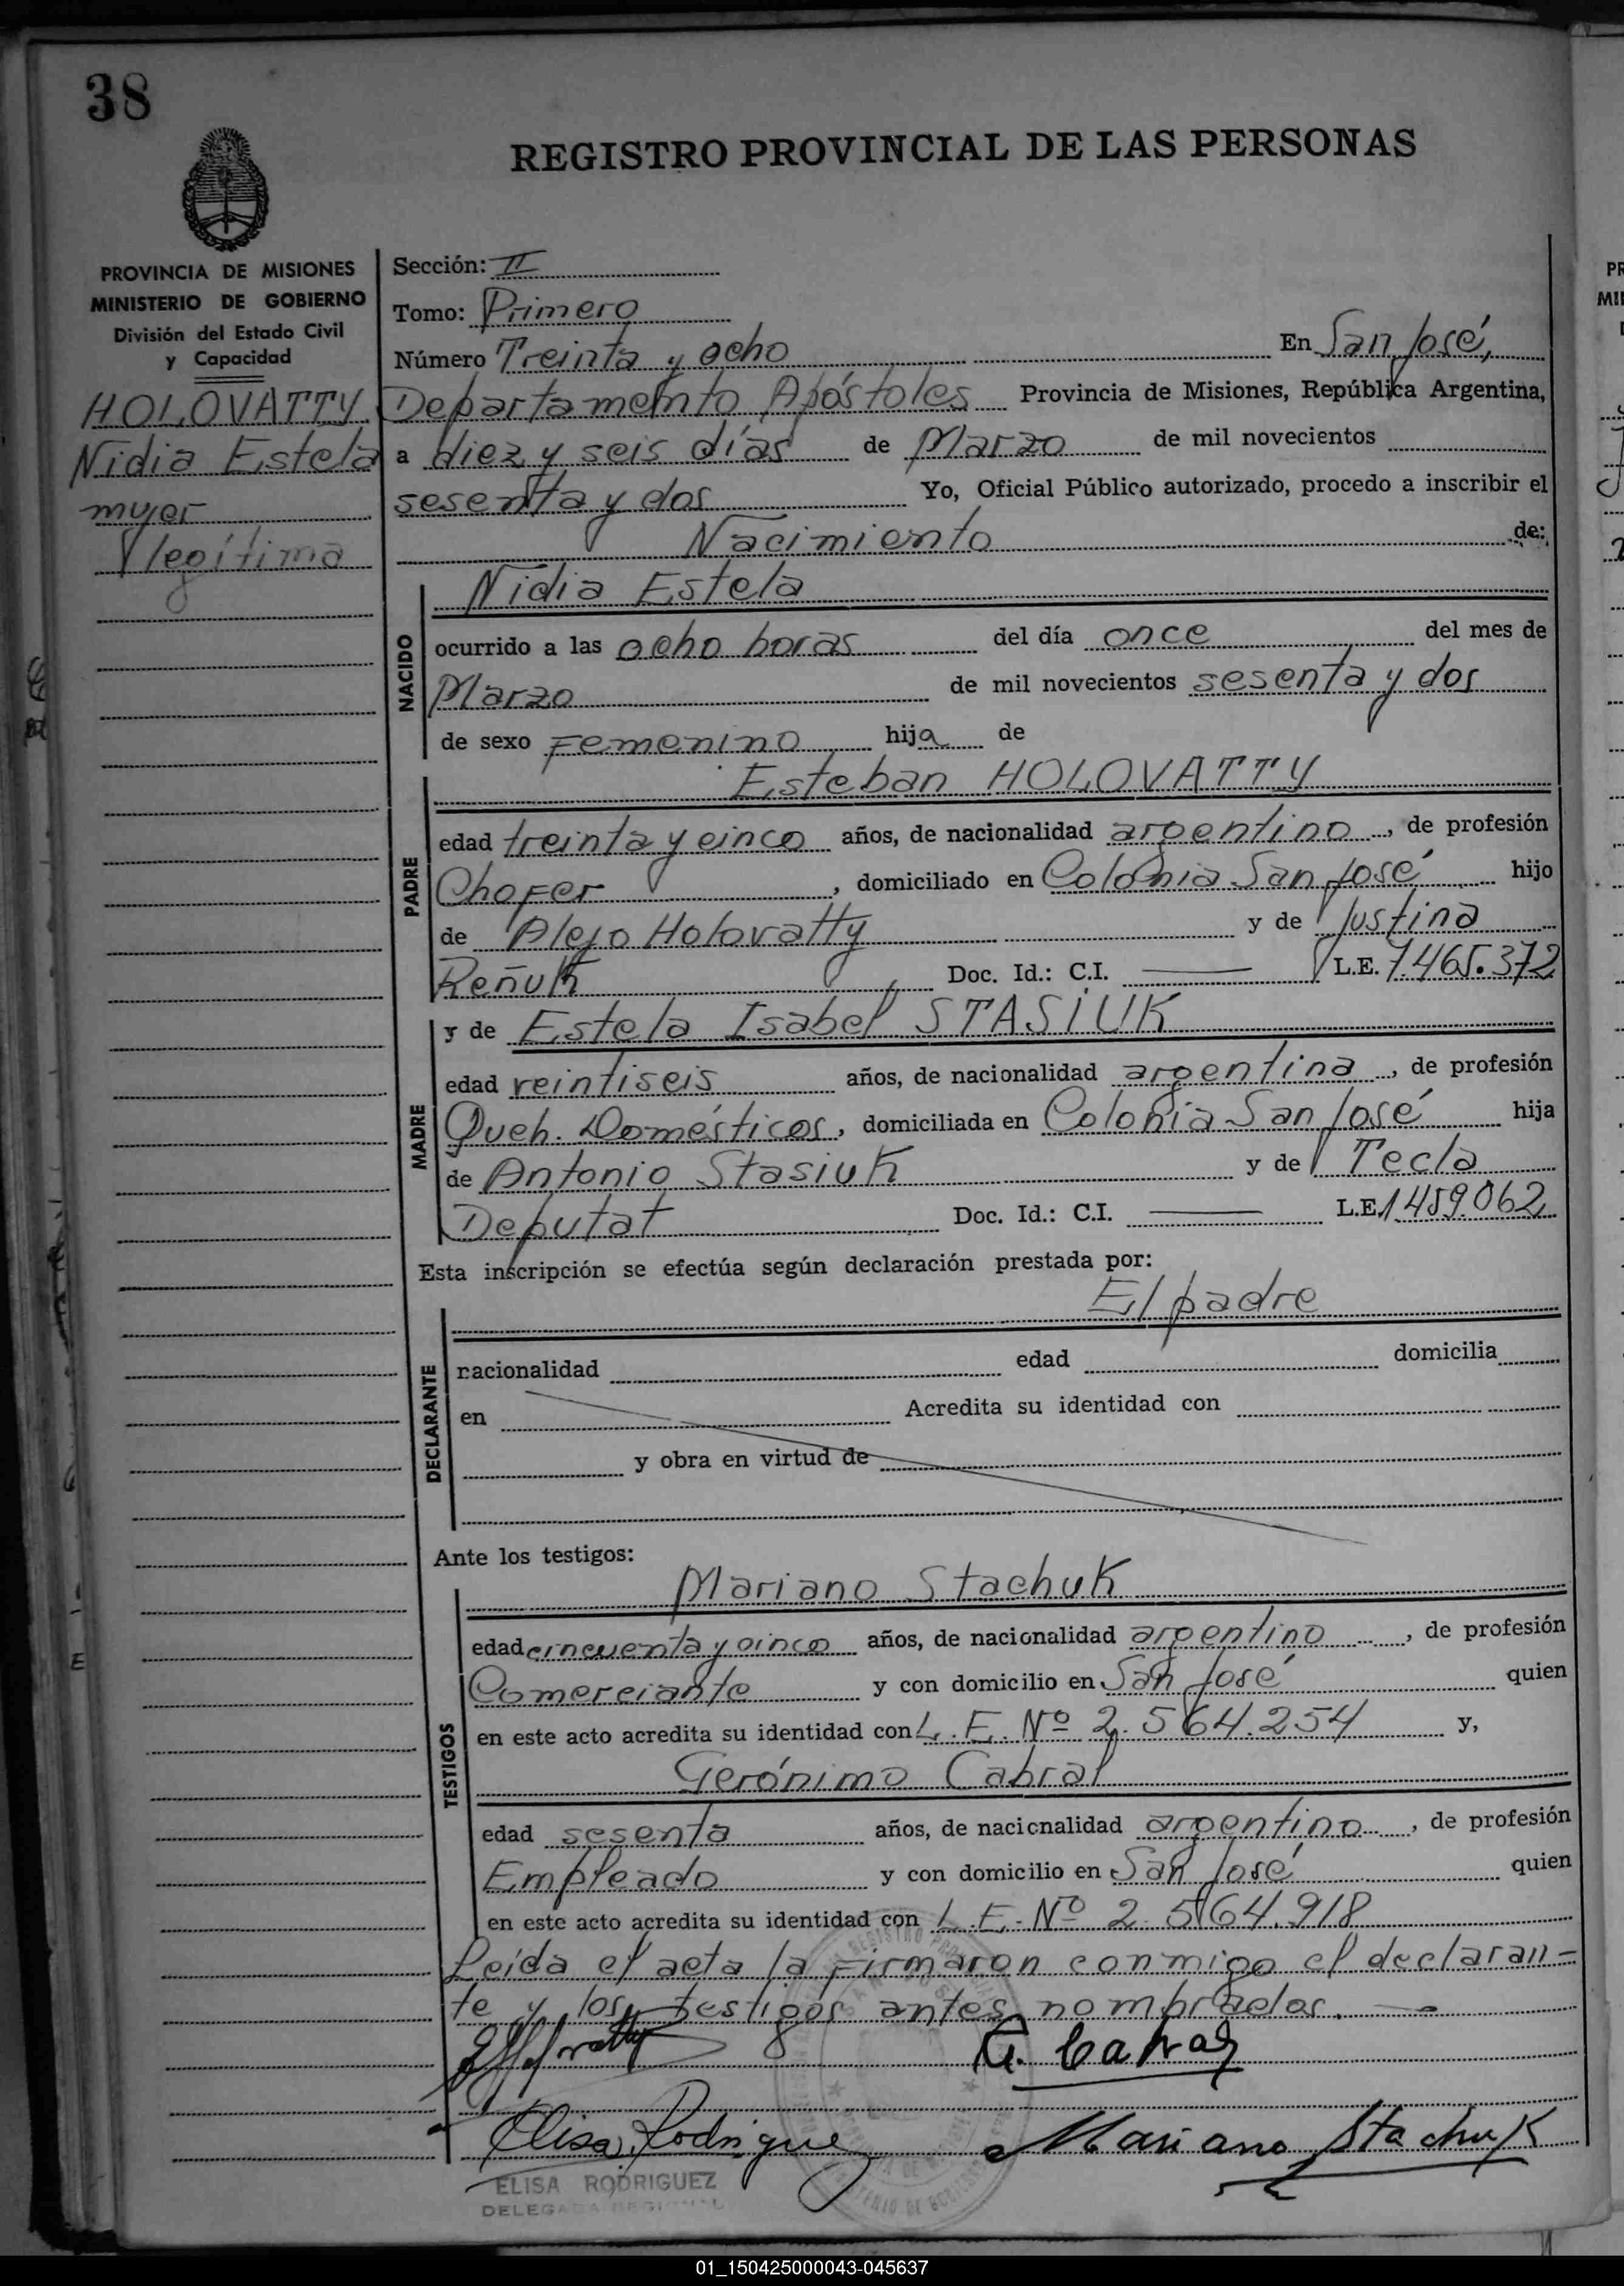 38
REGISTRO PROVINCIAL DE LAS PERSONAS
PROVINCIA DE MISIONES
MINISTERIO DE GOBIERNO
División del Estado Civil
y Capacidad
HOLOVATTY
Nidia Estela
mujer
legítima
Sección: II
Tomo: Primero
Número Treinta y ocho En San José,
Departamento Apóstoles Provincia de Misiones, República Argentina,
a diez y seis días de Marzo de mil novecientos
sesenta y dos Yo, Oficial Público autorizado, procedo a inscribir el
Nacimiento de:
NACIDO
Nidia Estela
ocurrido a las ocho horas del día once del mes de
Marzo de mil novecientos sesenta y dos
de sexo Femenino hija de
PADRE
Esteban HOLOVATTY
edad treinta y cinco años, de nacionalidad argentino, de profesión
Chofer, domiciliado en Colonia San José hijo
de Alejo Holovatty y de Justina
Reñuk Doc. Id.: C.I. L.E. 7.465.372
MADRE
y de Estela Isabel STASIUK
edad veintiseis años, de nacionalidad argentina, de profesión
Queh. Domésticos, domiciliada en Colonia San José hija
de Antonio Stasiuk y de Tecla
Deputat Doc. Id.: C.I. L.E. 1.459.062
Esta inscripción se efectúa según declaración prestada por:
El padre
DECLARANTE
nacionalidad edad domicilia
en Acredita su identidad con
y obra en virtud de
Ante los testigos:
TESTIGOS
Mariano Stachuk
edad cincuenta y cinco años, de nacionalidad argentino, de profesión
Comerciante y con domicilio en San José quien
en este acto acredita su identidad con L.E. Nº 2.564.254 y,
Gerónimo Cabral
edad sesenta años, de nacionalidad argentino, de profesión
Empleado y con domicilio en San José quien
en este acto acredita su identidad con L.E. Nº 2.564.918
Leída el acta la Firmaron conmigo el declaran=
te y los testigos antes nombrados.
G. Cabral
Elisa Rodriguez Mariano Stachuk
ELISA RODRIGUEZ
01_150425000043-045637